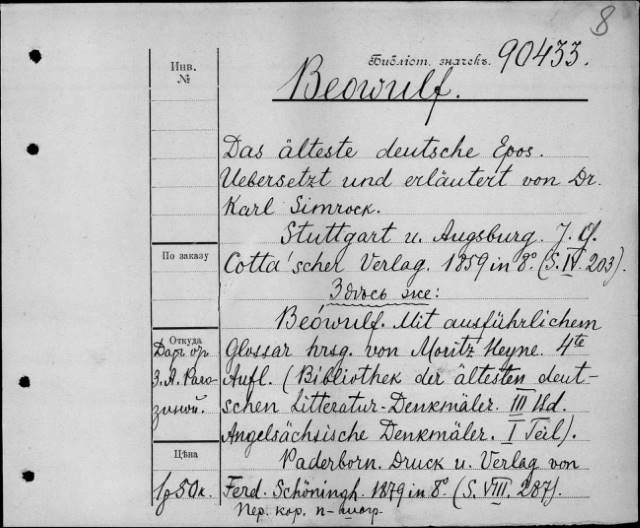 8
Библіот. значекъ. 90433.
Инв.
№
Beowulf.
Das älteste deutsche Epos.
Uebersetzt und erläutert von Dr.
Karl Simrock.
Stuttgart u. Augsburg. J. G.
По заказу
Cotta'scher Verlag. 1859 in 8° (S. IV. 203).
Здѣсь же:
Beówulf. Mit ausführlichem
Откуда
Даръ отъ
З. А. Раго-
зиной.
Glossar hrsg. von Moritz Heyne. 4te
Aufl. (Bibliothek der ältesten deut-
schen Litteratur-Denkmäler. III Bd.
Angelsächsische Denkmäler. I Teil).
Цѣна
1 р 50 к.
Paderborn. Druck u. Verlag von
Ferd. Schöningh. 1879 in 8° (S. VIII. 287).
Пер. кор. п-